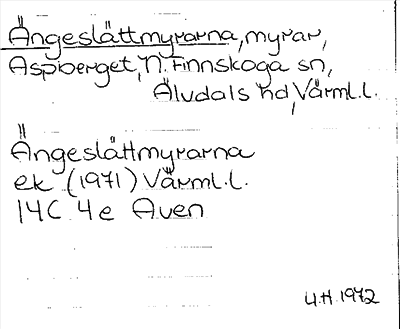 Ängeslåttmyrarna, myrar,
Aspberget, N. Finnskoga sn,
Älvdals hd, Värml.l.
Ängeslåttmyrarna
ek (1971) Värml.l.
14C 4e Aven
U.H. 1972